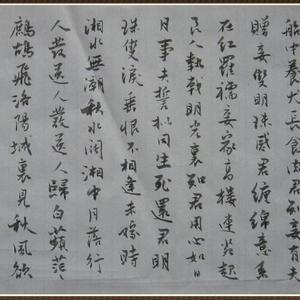 船中養犬長食肉君知妾有夫
贈妾雙明珠感君纏綿意系
在紅羅襦妾家高樓連苑起
良人執戟明光裏知君用心如日
月事夫誓擬同生死還君明
珠雙淚垂恨不相逢未嫁時
湘水無潮秋水闊湘中月落行
人發送人發送人歸白蘋茫々
鷓鴣飛洛陽城裏見秋風欲